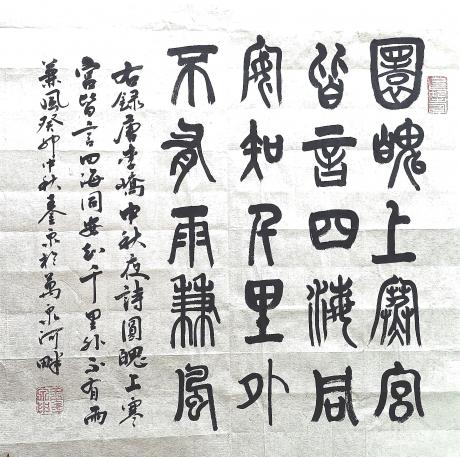 圓魄上寒宮
皆言四海同
安知千里外
不有雨兼風
右錄唐李嶠中秋夜詩圓魄上寒
宮皆言四海同安知千里外不有雨
兼風癸卯中秋泉於萬泉河畔